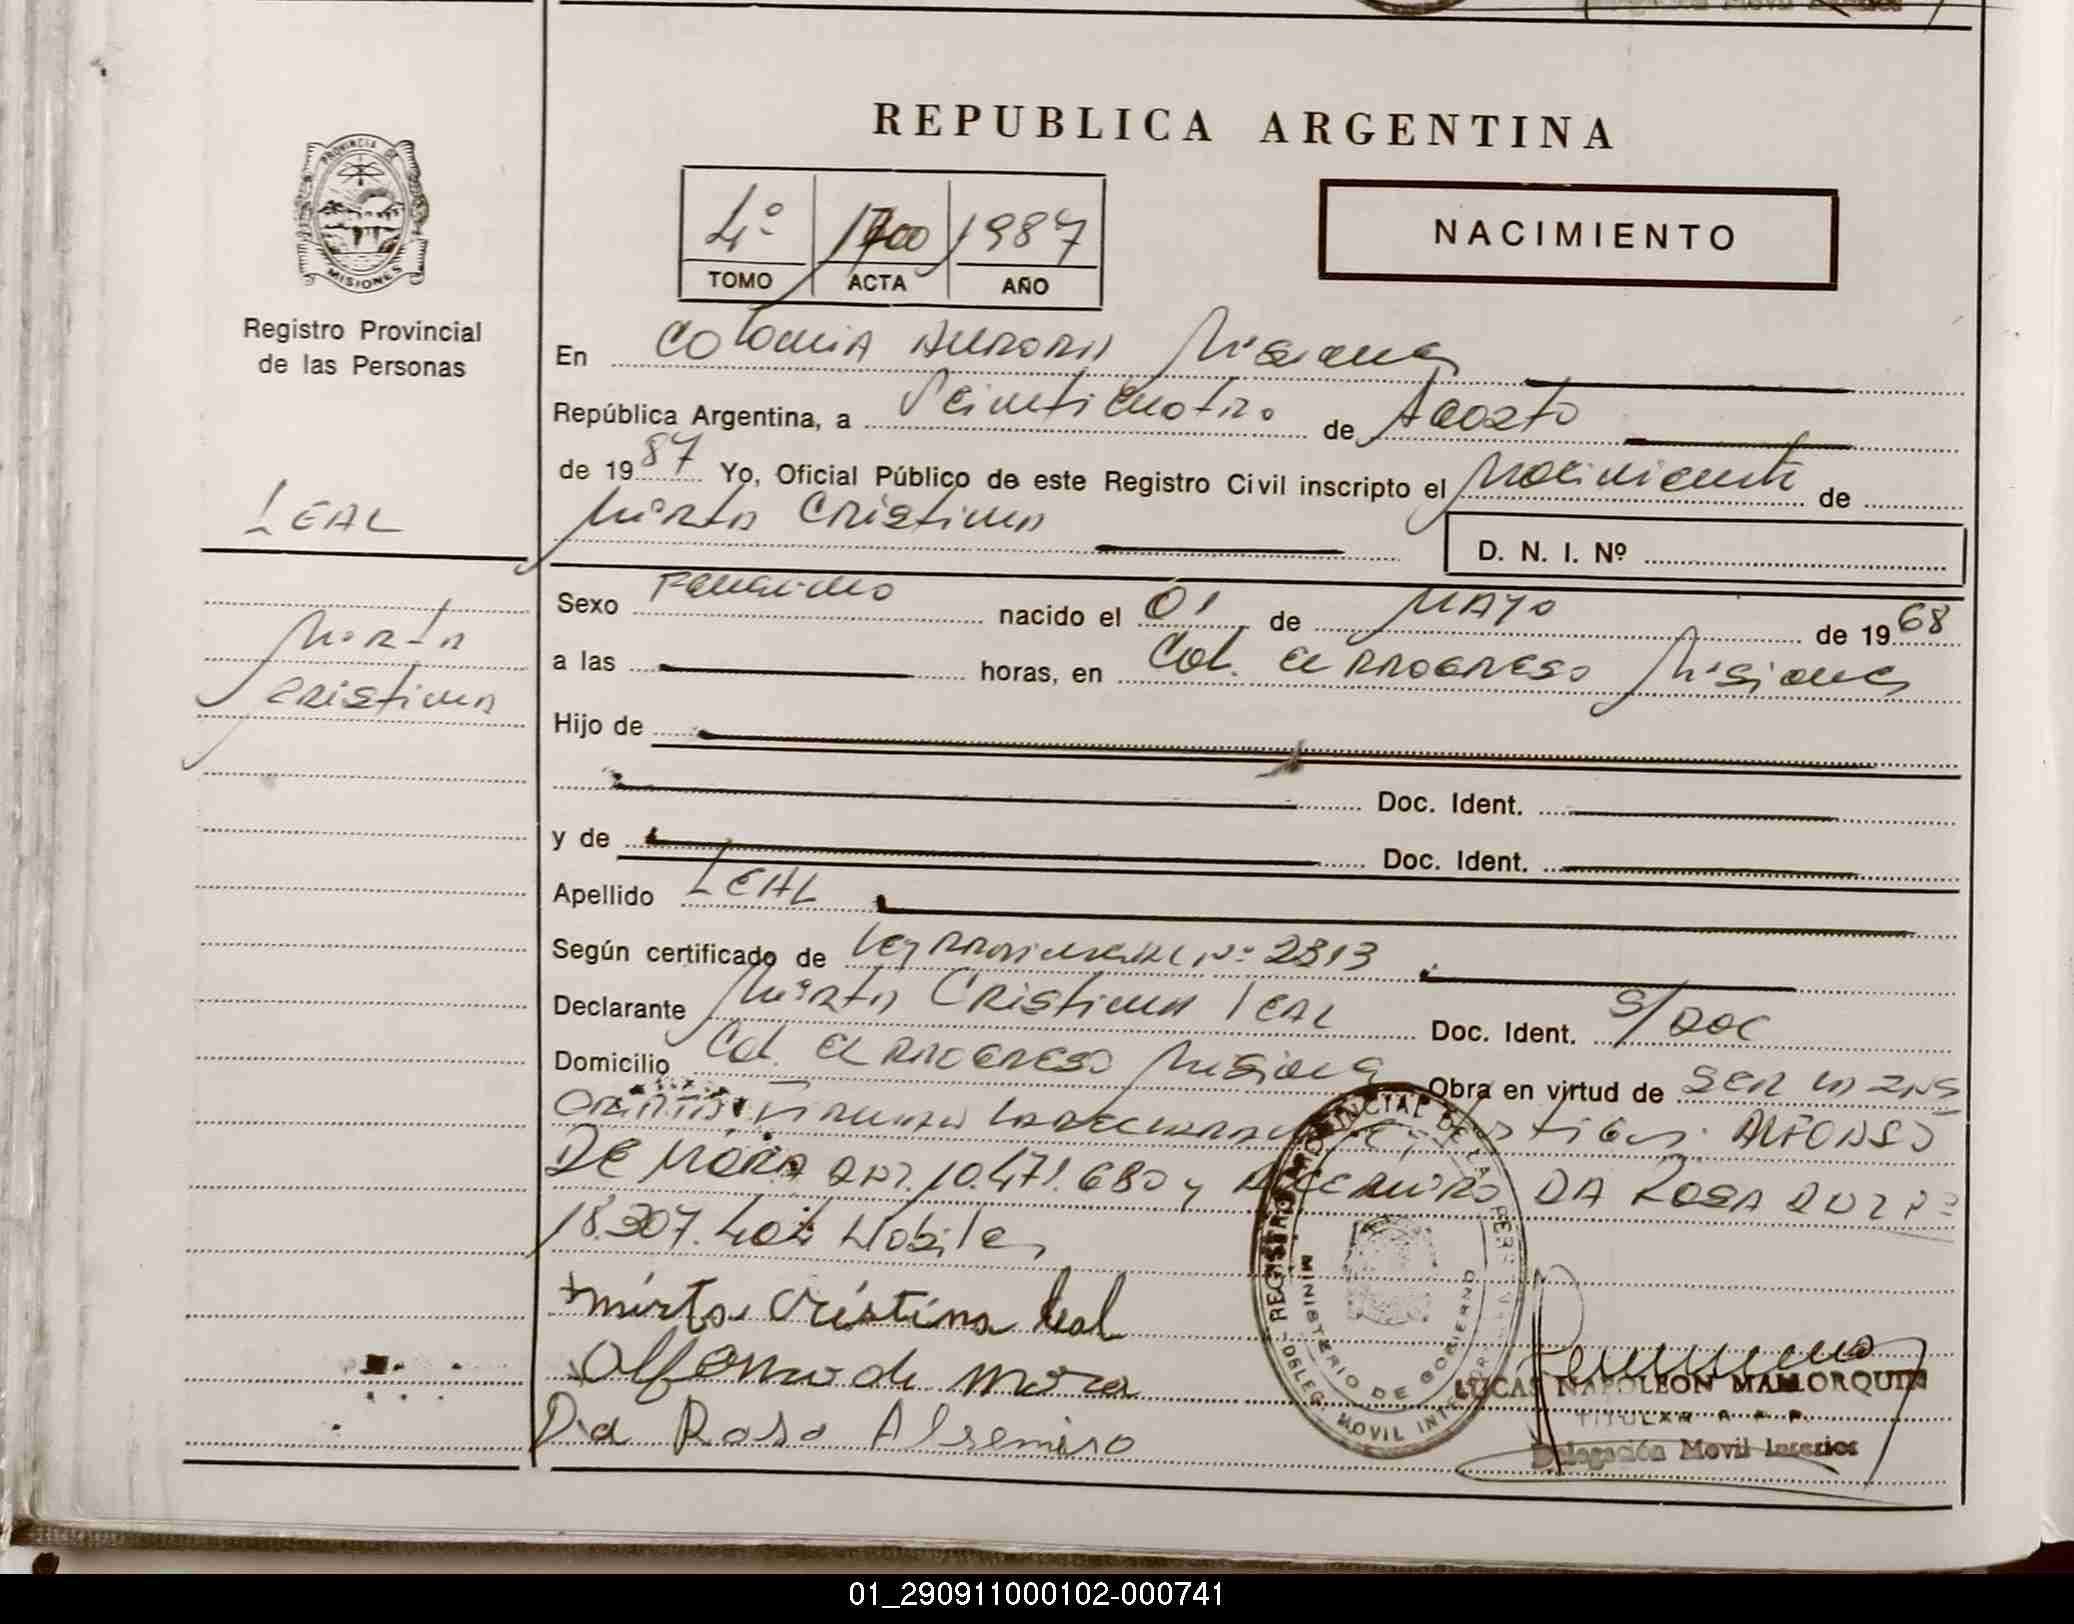 REPUBLICA ARGENTINA
PROVINCIA DE
MISIONES
4º 1987
TOMO ACTA AÑO
NACIMIENTO
Registro Provincial
de las Personas
En Colonia Aurora Misiones
República Argentina, a Veinticuatro de Agosto
de 1987 Yo, Oficial Público de este Registro Civil inscripto el Nacimiento de
Mirta Cristina
D. N. I. Nº
LEAL
Mirta
Cristina
Sexo Femenino nacido el 01 de MAYO de 1968
a las horas, en Col. el PROGRESO Misiones
Hijo de
Doc. Ident.
y de Doc. Ident.
Apellido LEAL
Según certificado de Ley Provincial Nº 2313
Declarante Mirta Cristina LEAL Doc. Ident. S/DOC
Domicilio Col. EL PROGRESO Misiones Obra en virtud de SER LA INS
CRIPTA Firman la declarante testigos ALFONSO
DE MORA 10.471.680 y ALCEMIRO DA ROSA
18.307.404 Hábiles
mirta cristina leal
Alfonso de mora
Da Rosa Alsemiro
REGISTRO PROVINCIAL DE LAS PERSONAS
DELEG. MOVIL INTERIOR
MINISTERIO DE GOBIERNO
LUCAS NAPOLEON MALLORQUIN
TITULAR
Delegación Movil Interior
01_290911000102-000741